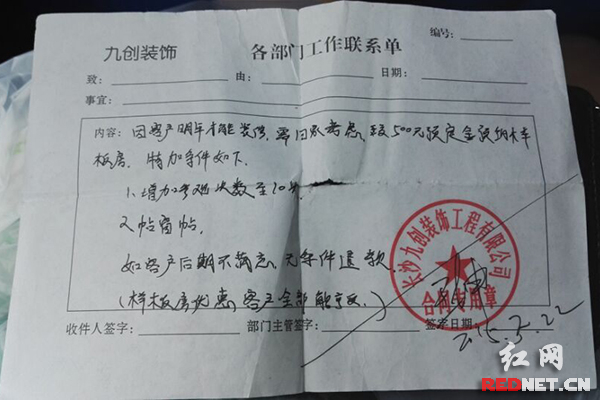 九创装饰
各部门工作联系单
编号:
致: 由: 日期:
事宜:
内容: 因客户明年才能装修, 需回家考虑, 交500元预定金 纳本车
板房. 特加条件如下.
1. 增加 次数至10次
2.
如客户后期不满意. 无条件退款.
(样板房优惠 客户全部能享受.)
长沙九创装饰工程有限公司
合同专用章
收件人签字: 部门主管签字: 签定日期:
2015.3.22
红网
REDNET.CN